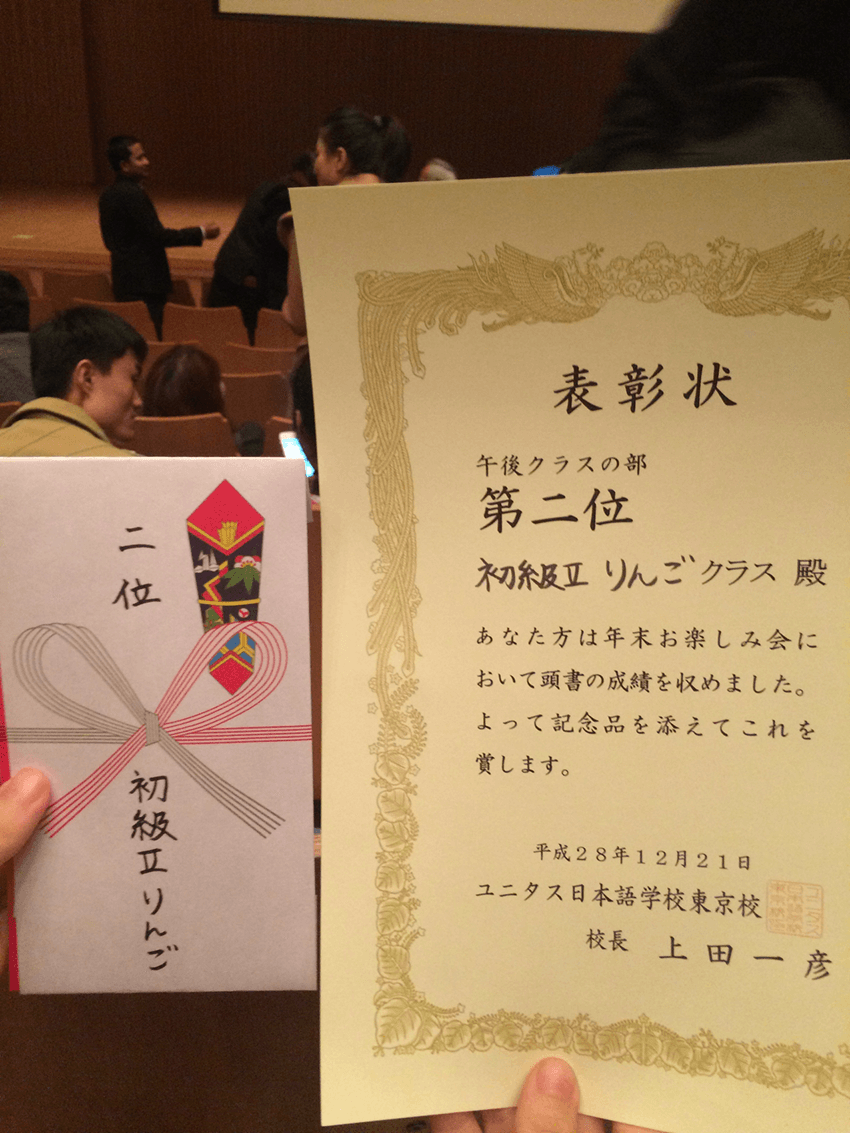 二位
初級Ⅱりんご
表彰状
午後クラスの部
第二位
初級Ⅱ りんごクラス 殿
あなた方は年末お楽しみ会に
おいて頭書の成績を収めました。
よって記念品を添えてこれを
賞します。
平成28年12月21日
ユニタス日本語学校東京校
校長 上田一彦
ユニタス
日本語学校
東京校